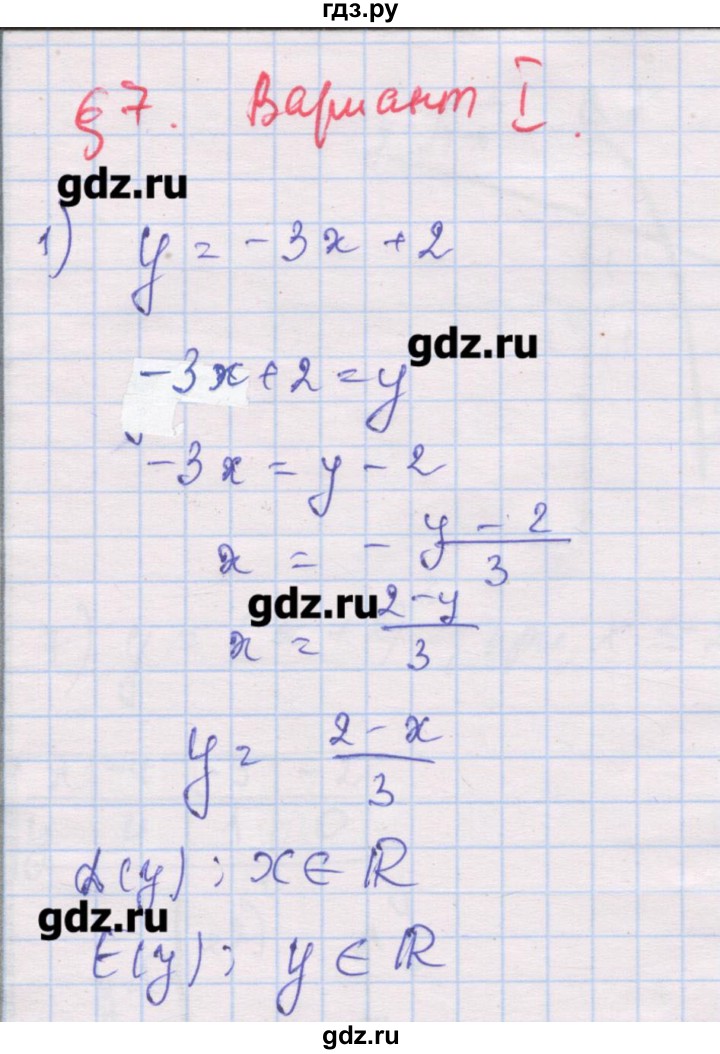 гдз.ру
§ 7. Вариант I.
gdz.ru
1) y = -3x + 2
gdz.ru
-3x + 2 = y
-3x = y - 2
x = - (y - 2)/3
gdz.ru
x = (2 - y)/3
y = (2 - x)/3
D(y): x ∈ R
gdz.ru
E(y): y ∈ R
gdz.ru